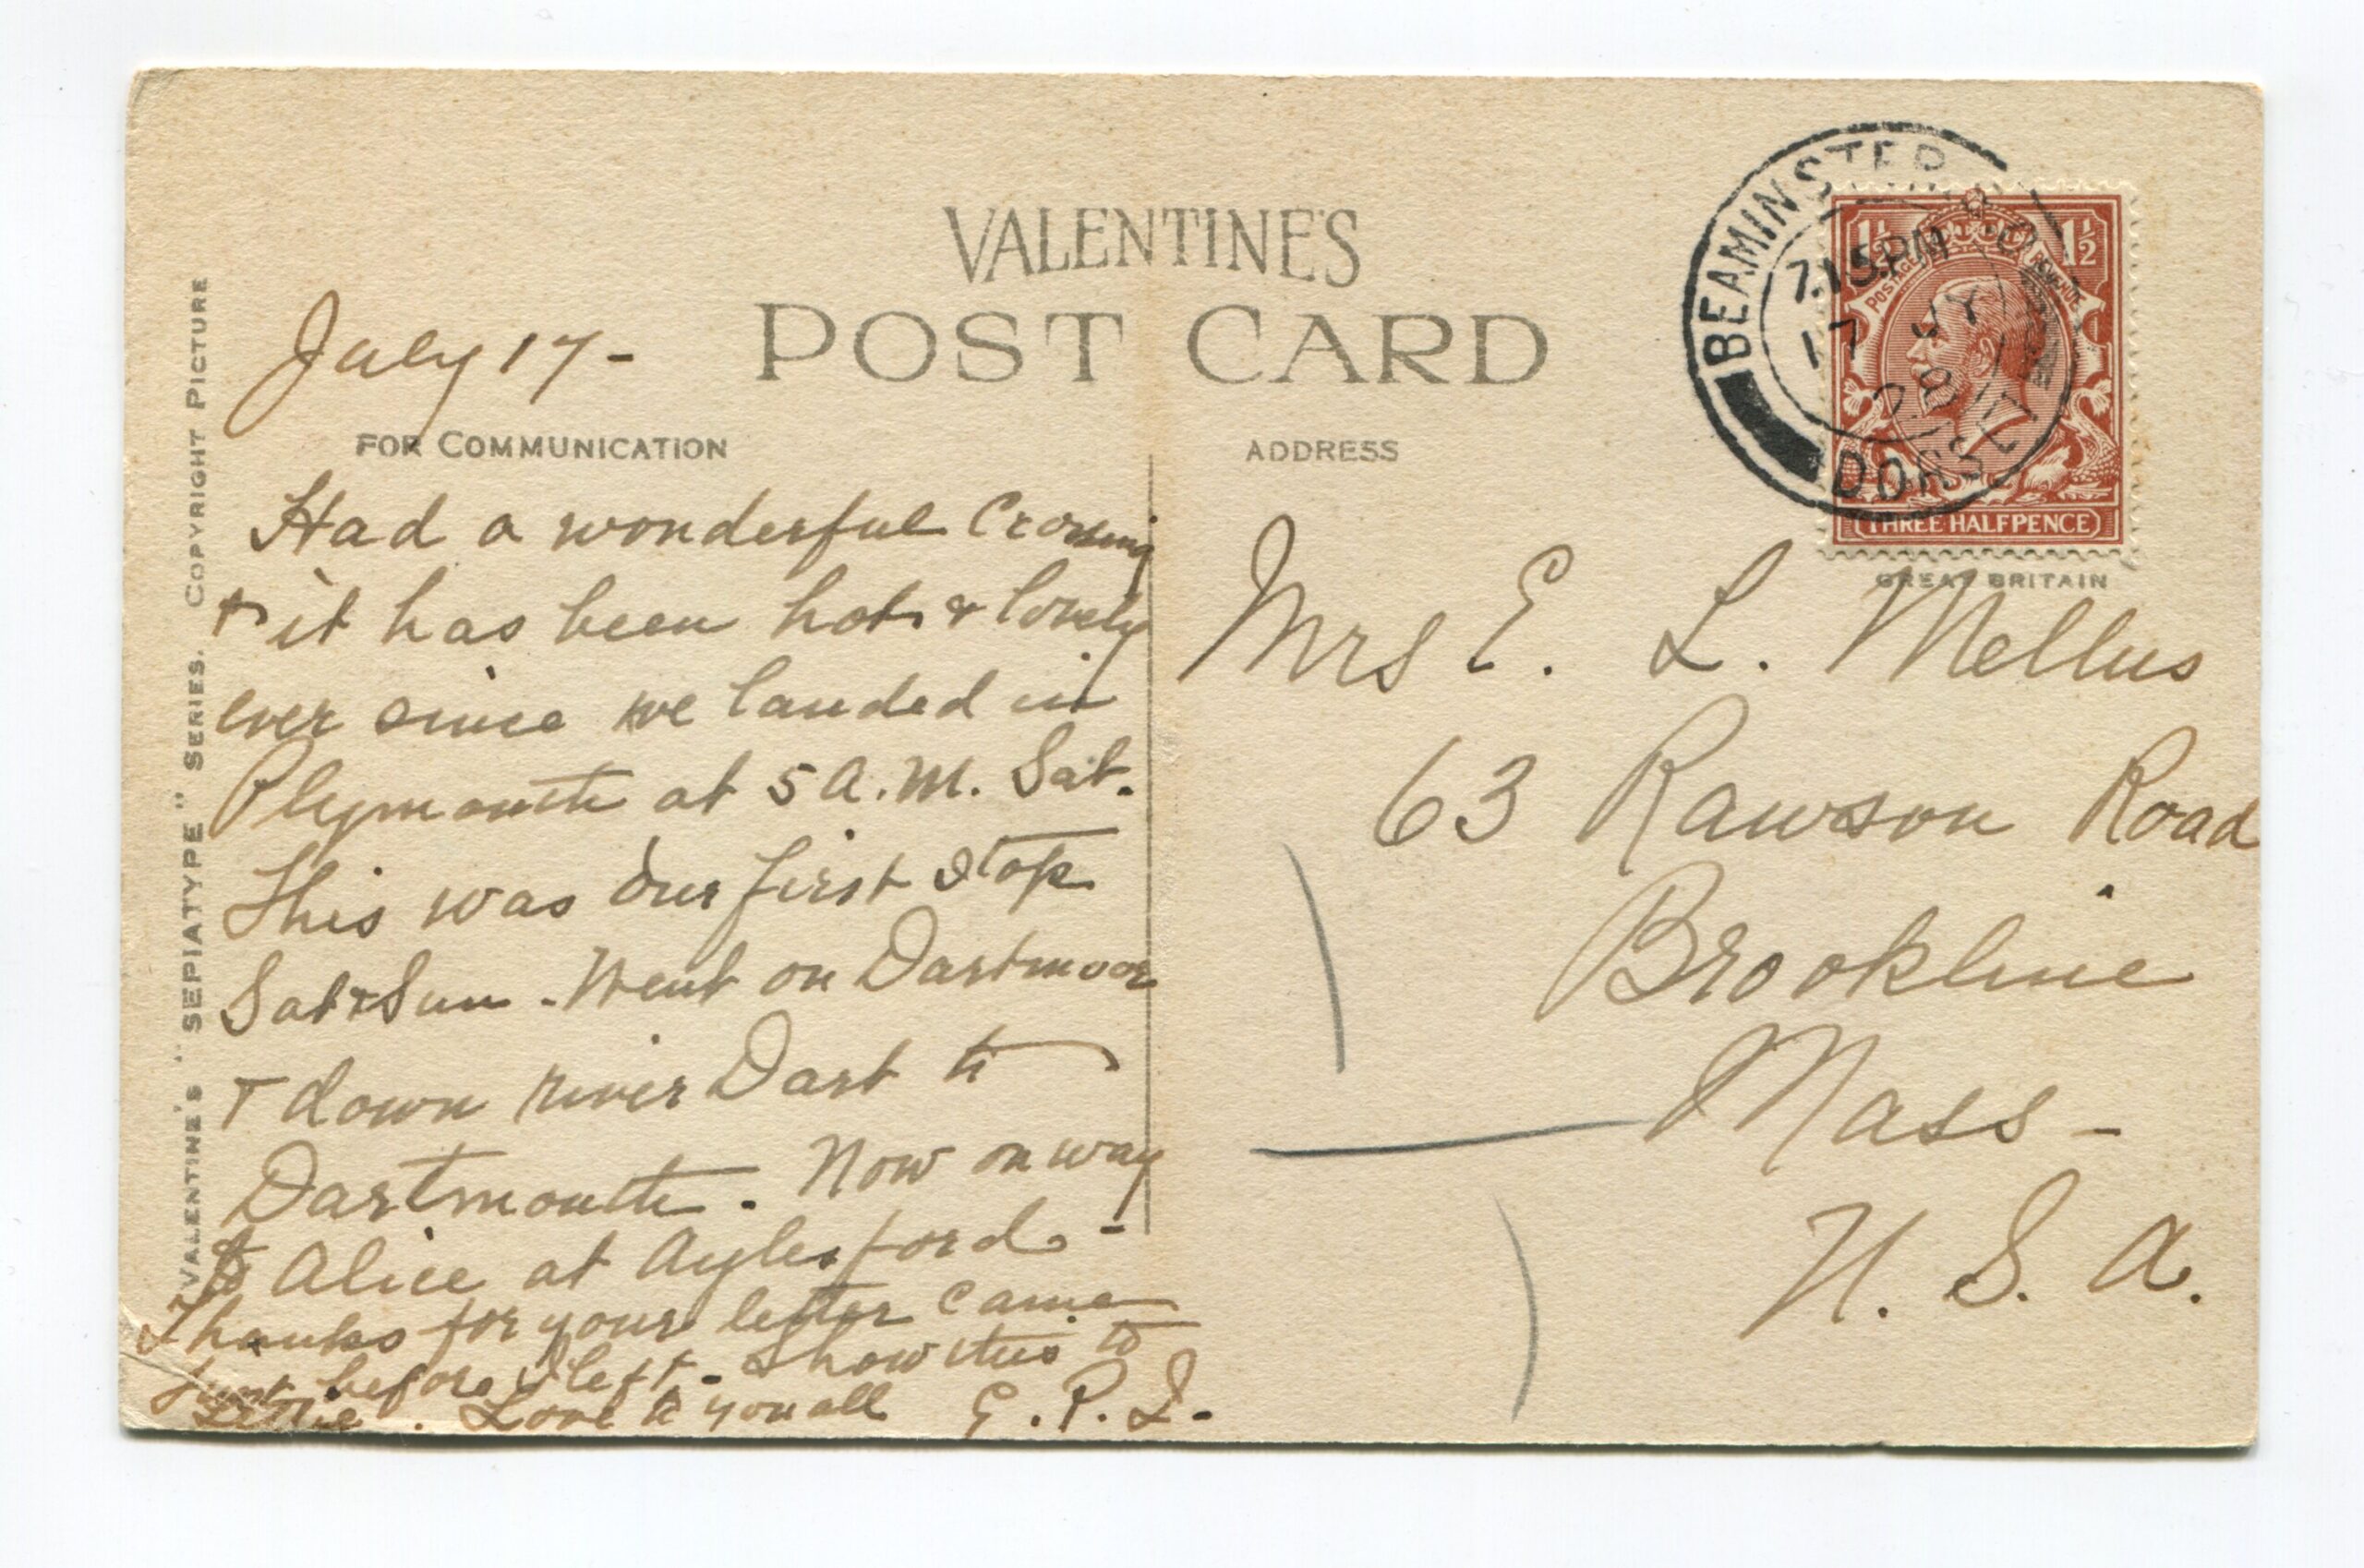 VALENTINE'S
POST CARD
July 17 -
FOR COMMUNICATION
Had a wonderful Crossing
+ it has been hot & lovely
ever since we landed in
Plymouth at 5 A.M. Sat.
This was our first stop
Sat & Sun - Went on Dartmoor
+ down river Dart to
Dartmouth. Now on way
to Alice at Aylesford -
Thanks for your letter came
just before I left - Show this to
Lettie. Love to you all E. P. I.
VALENTINE'S "SEPIATYPE" SERIES. COPYRIGHT PICTURE
ADDRESS
Mrs E. L. Mellus
63 Rawson Road
Brookline
Mass -
U. S. A.
BEAMINSTER S.O
7.15 PM
17 JY
28
DORSET
1½ 1½
POSTAGE REVENUE
THREE HALFPENCE
GREAT BRITAIN